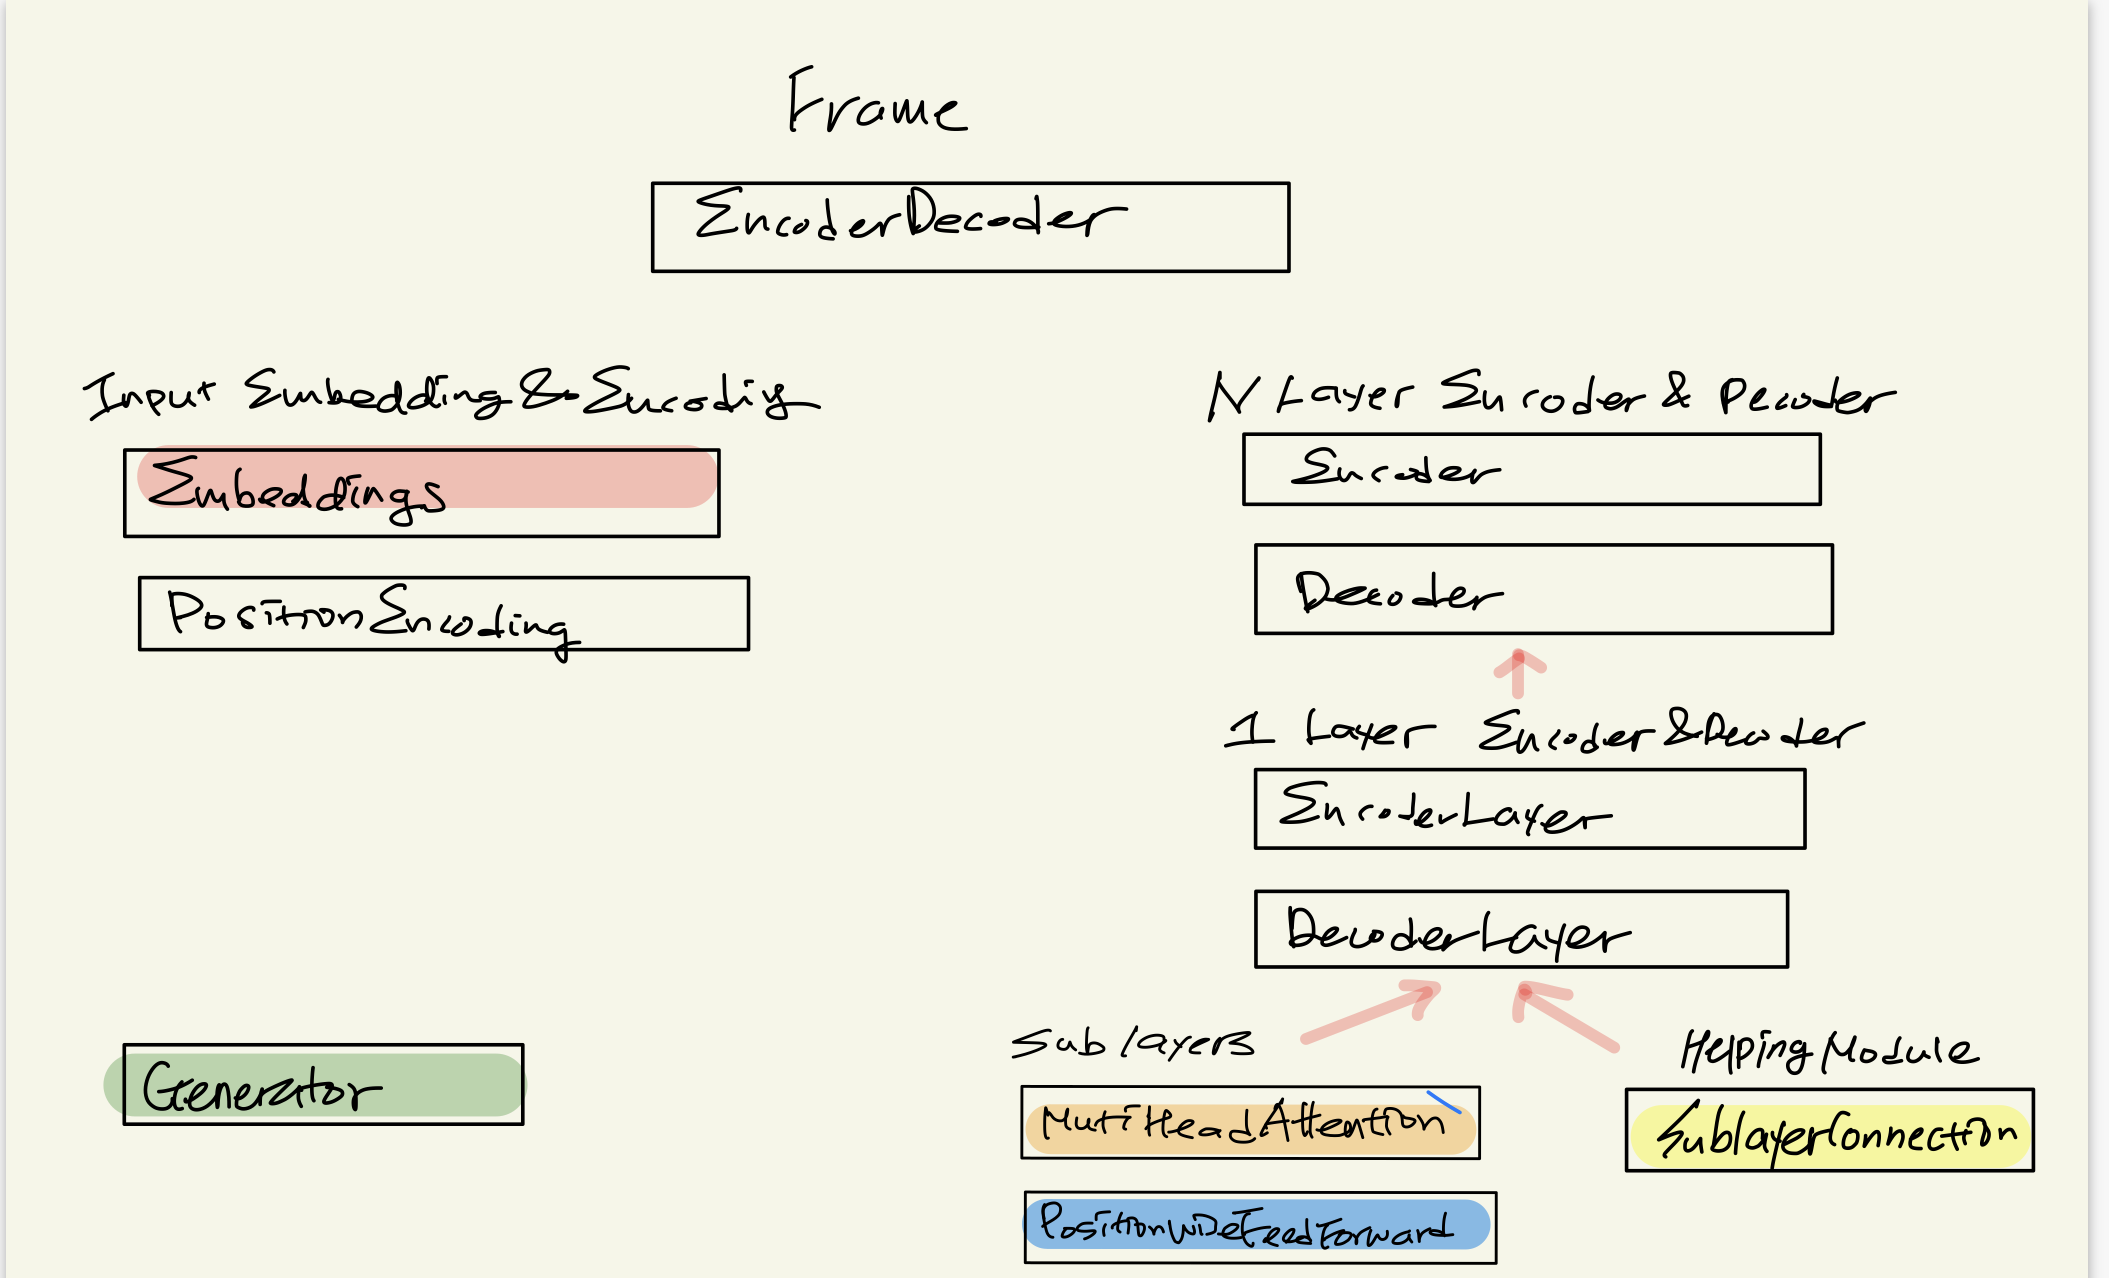 Frame
EncoderDecoder
Input Embedding & Encodig
Embeddings
PositionEncoding
N Layer Encoder & Decoder
Encoder
Decoder
1 Layer Encoder & Decoder
EncoderLayer
DecoderLayer
Sublayers
MutiHeadAttention
PositionWiDeFeedForward
Helping Module
SublayerConnection
Generator